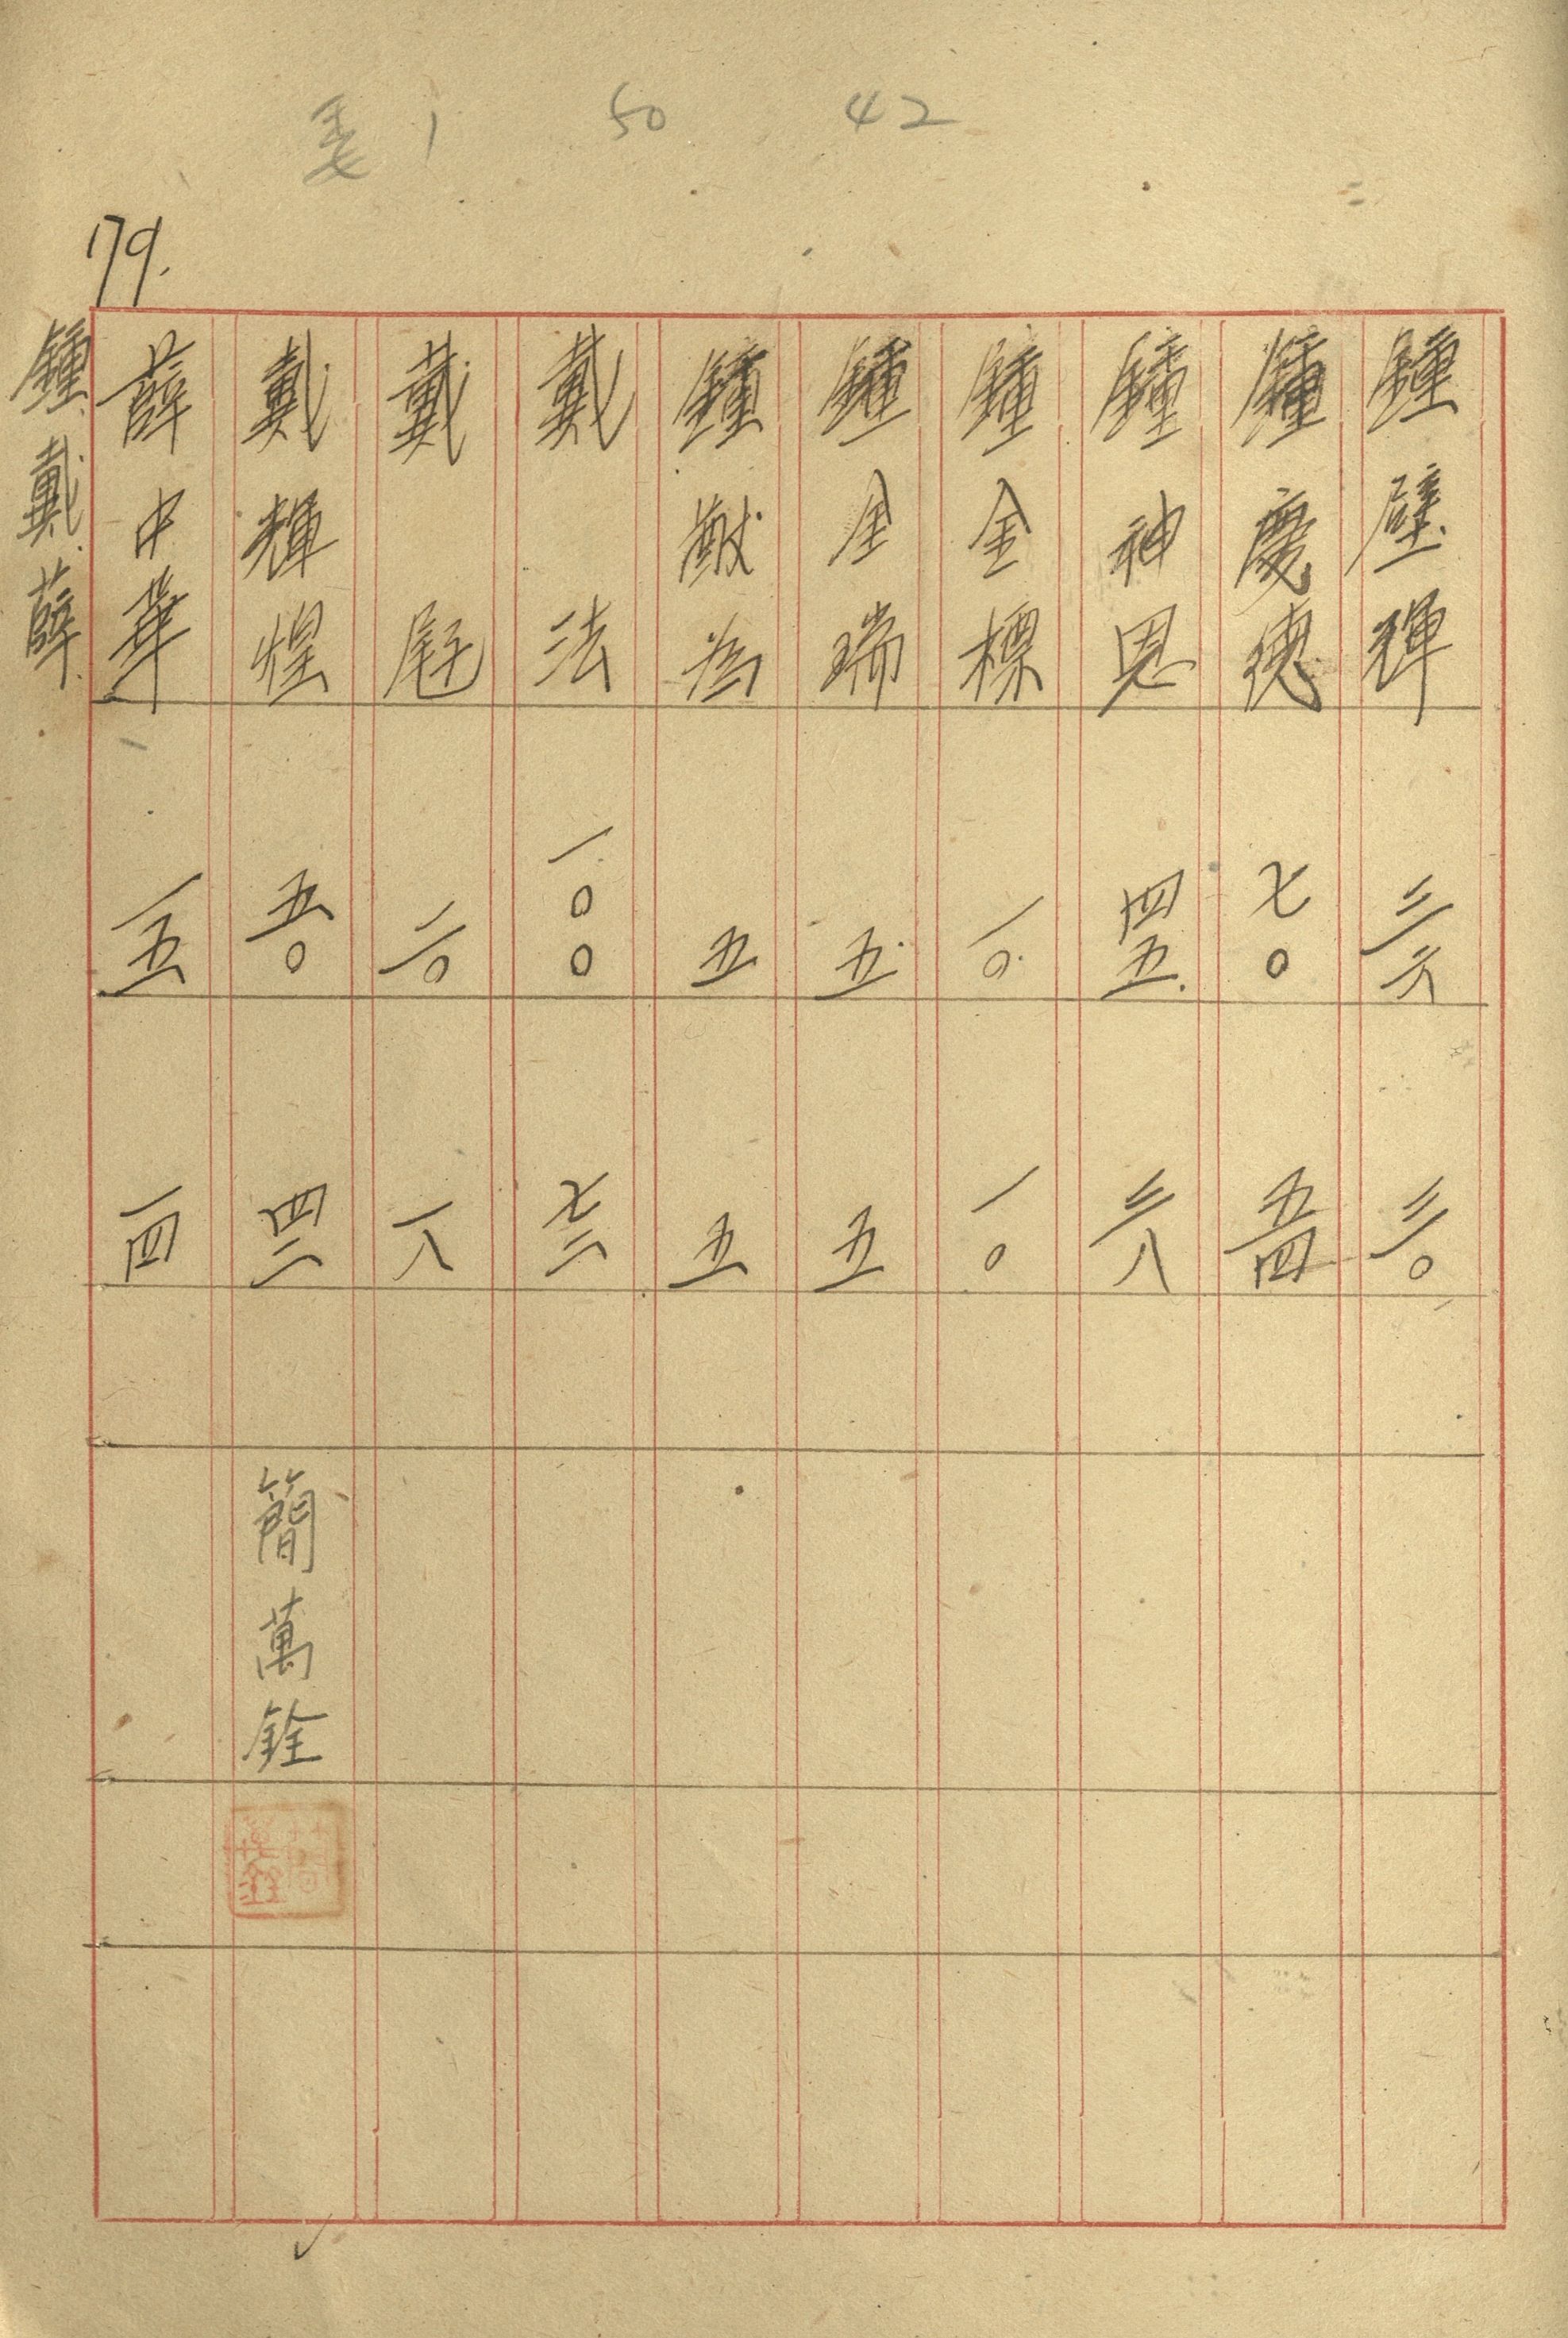 委1 50 42
179.
鍾璧輝 三六 三〇
鍾慶德 七〇 五四
鍾神恩 四五 三八
鍾金標 一〇 一〇
鍾金瑞 五 五
鍾 五 五
戴法 一〇〇 七二
戴 二〇 一八
戴輝煌 五〇 四二 簡萬銓
薛中華 一五 一四
鍾.戴.薛.